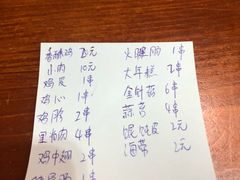 香酥鸡 8元
小肉 10元
鸡皮 1串
鸡心 1串
鸡胗 2串
里脊肉 4串
鸡中翅 2串
火腿肠 1串
大年糕 2串
金针菇 6串
蒜苔 4串
馄饨皮 2元
海带 2元